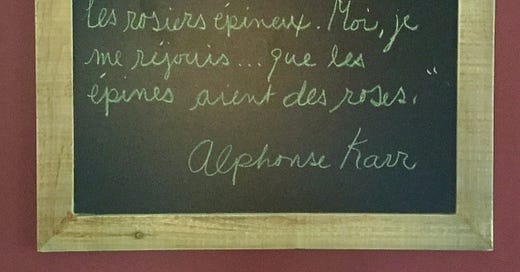 les rosiers épineux. Moi, je
me réjouis... que les
épines aient des roses."
Alphonse Karr